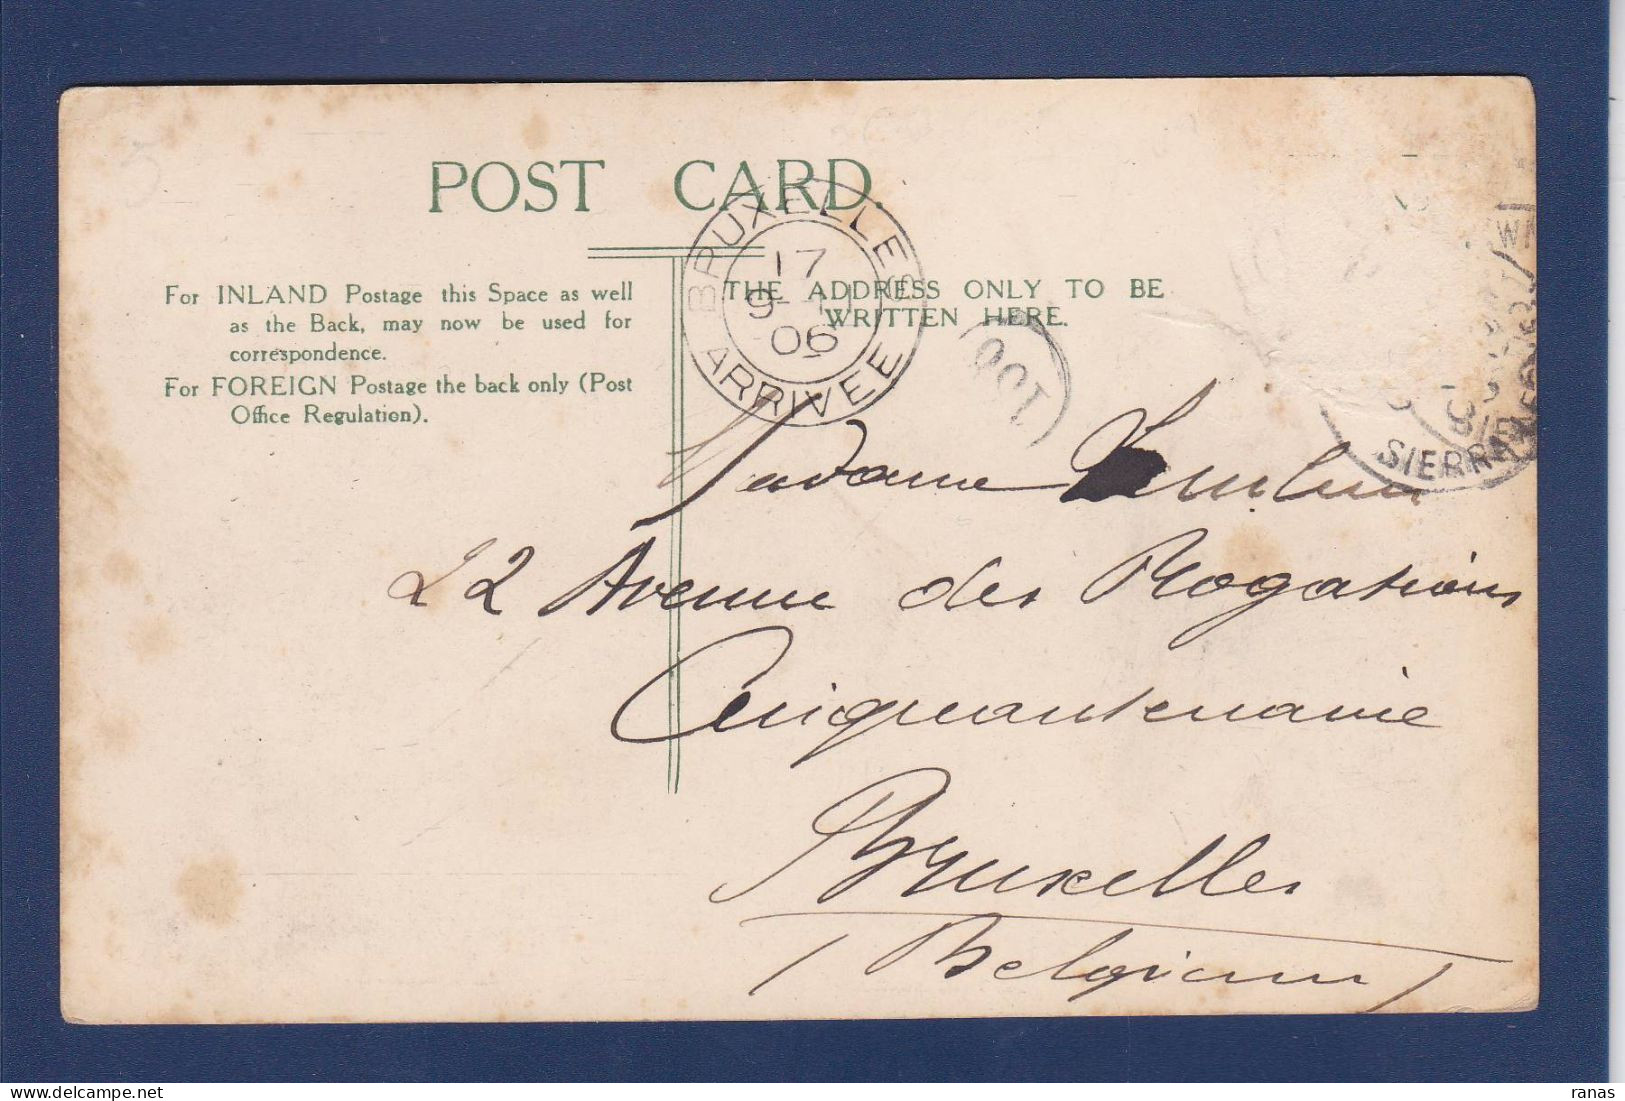 POST CARD.
For INLAND Postage this Space as well
as the Back, may now be used for
correspondence.
For FOREIGN Postage the back only (Post
Office Regulation).
THE ADDRESS ONLY TO BE
WRITTEN HERE.
BRUXELLES
17
06
ARRIVEE
SIERRA
Madame
22 Avenue des Rogations
Cinquantenaire
Bruxelles
(Belgium)
ranas